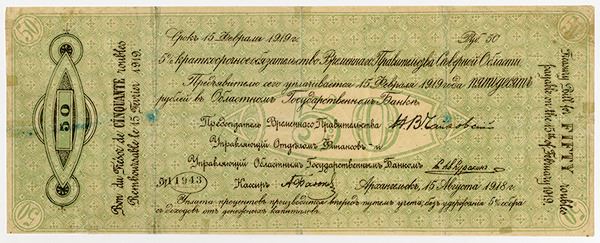 Срокъ 15 Февраля 1919 г.
Руб 50
5% Краткосрочное обязательство Временнаго Правительства Сѣверной Области.
Предъявителю сего уплачивается 15 Февраля 1919 года пятьдесятъ
рублей въ Областномъ Государственномъ Банкѣ.
Предсѣдатель Временнаго Правительства Н. В. Чайковскій
Управляющій Отдѣломъ Финансовъ
Управляющій Областнымъ Государственнымъ Банкомъ
№ 11943
Кассиръ
Архангельскъ, 15 Августа 1918 г.
Уплата процентовъ производится впередъ путемъ учета, безъ удержанія 5% сбора
съ доходовъ отъ денежныхъ капиталовъ.
50
Bon du Trésor de CINQUANTE roubles
Remboursable le 15 Février 1919.
Treasury Bill for FIFTY roubles
payable on the 15th of February 1919.
50
50
50
50